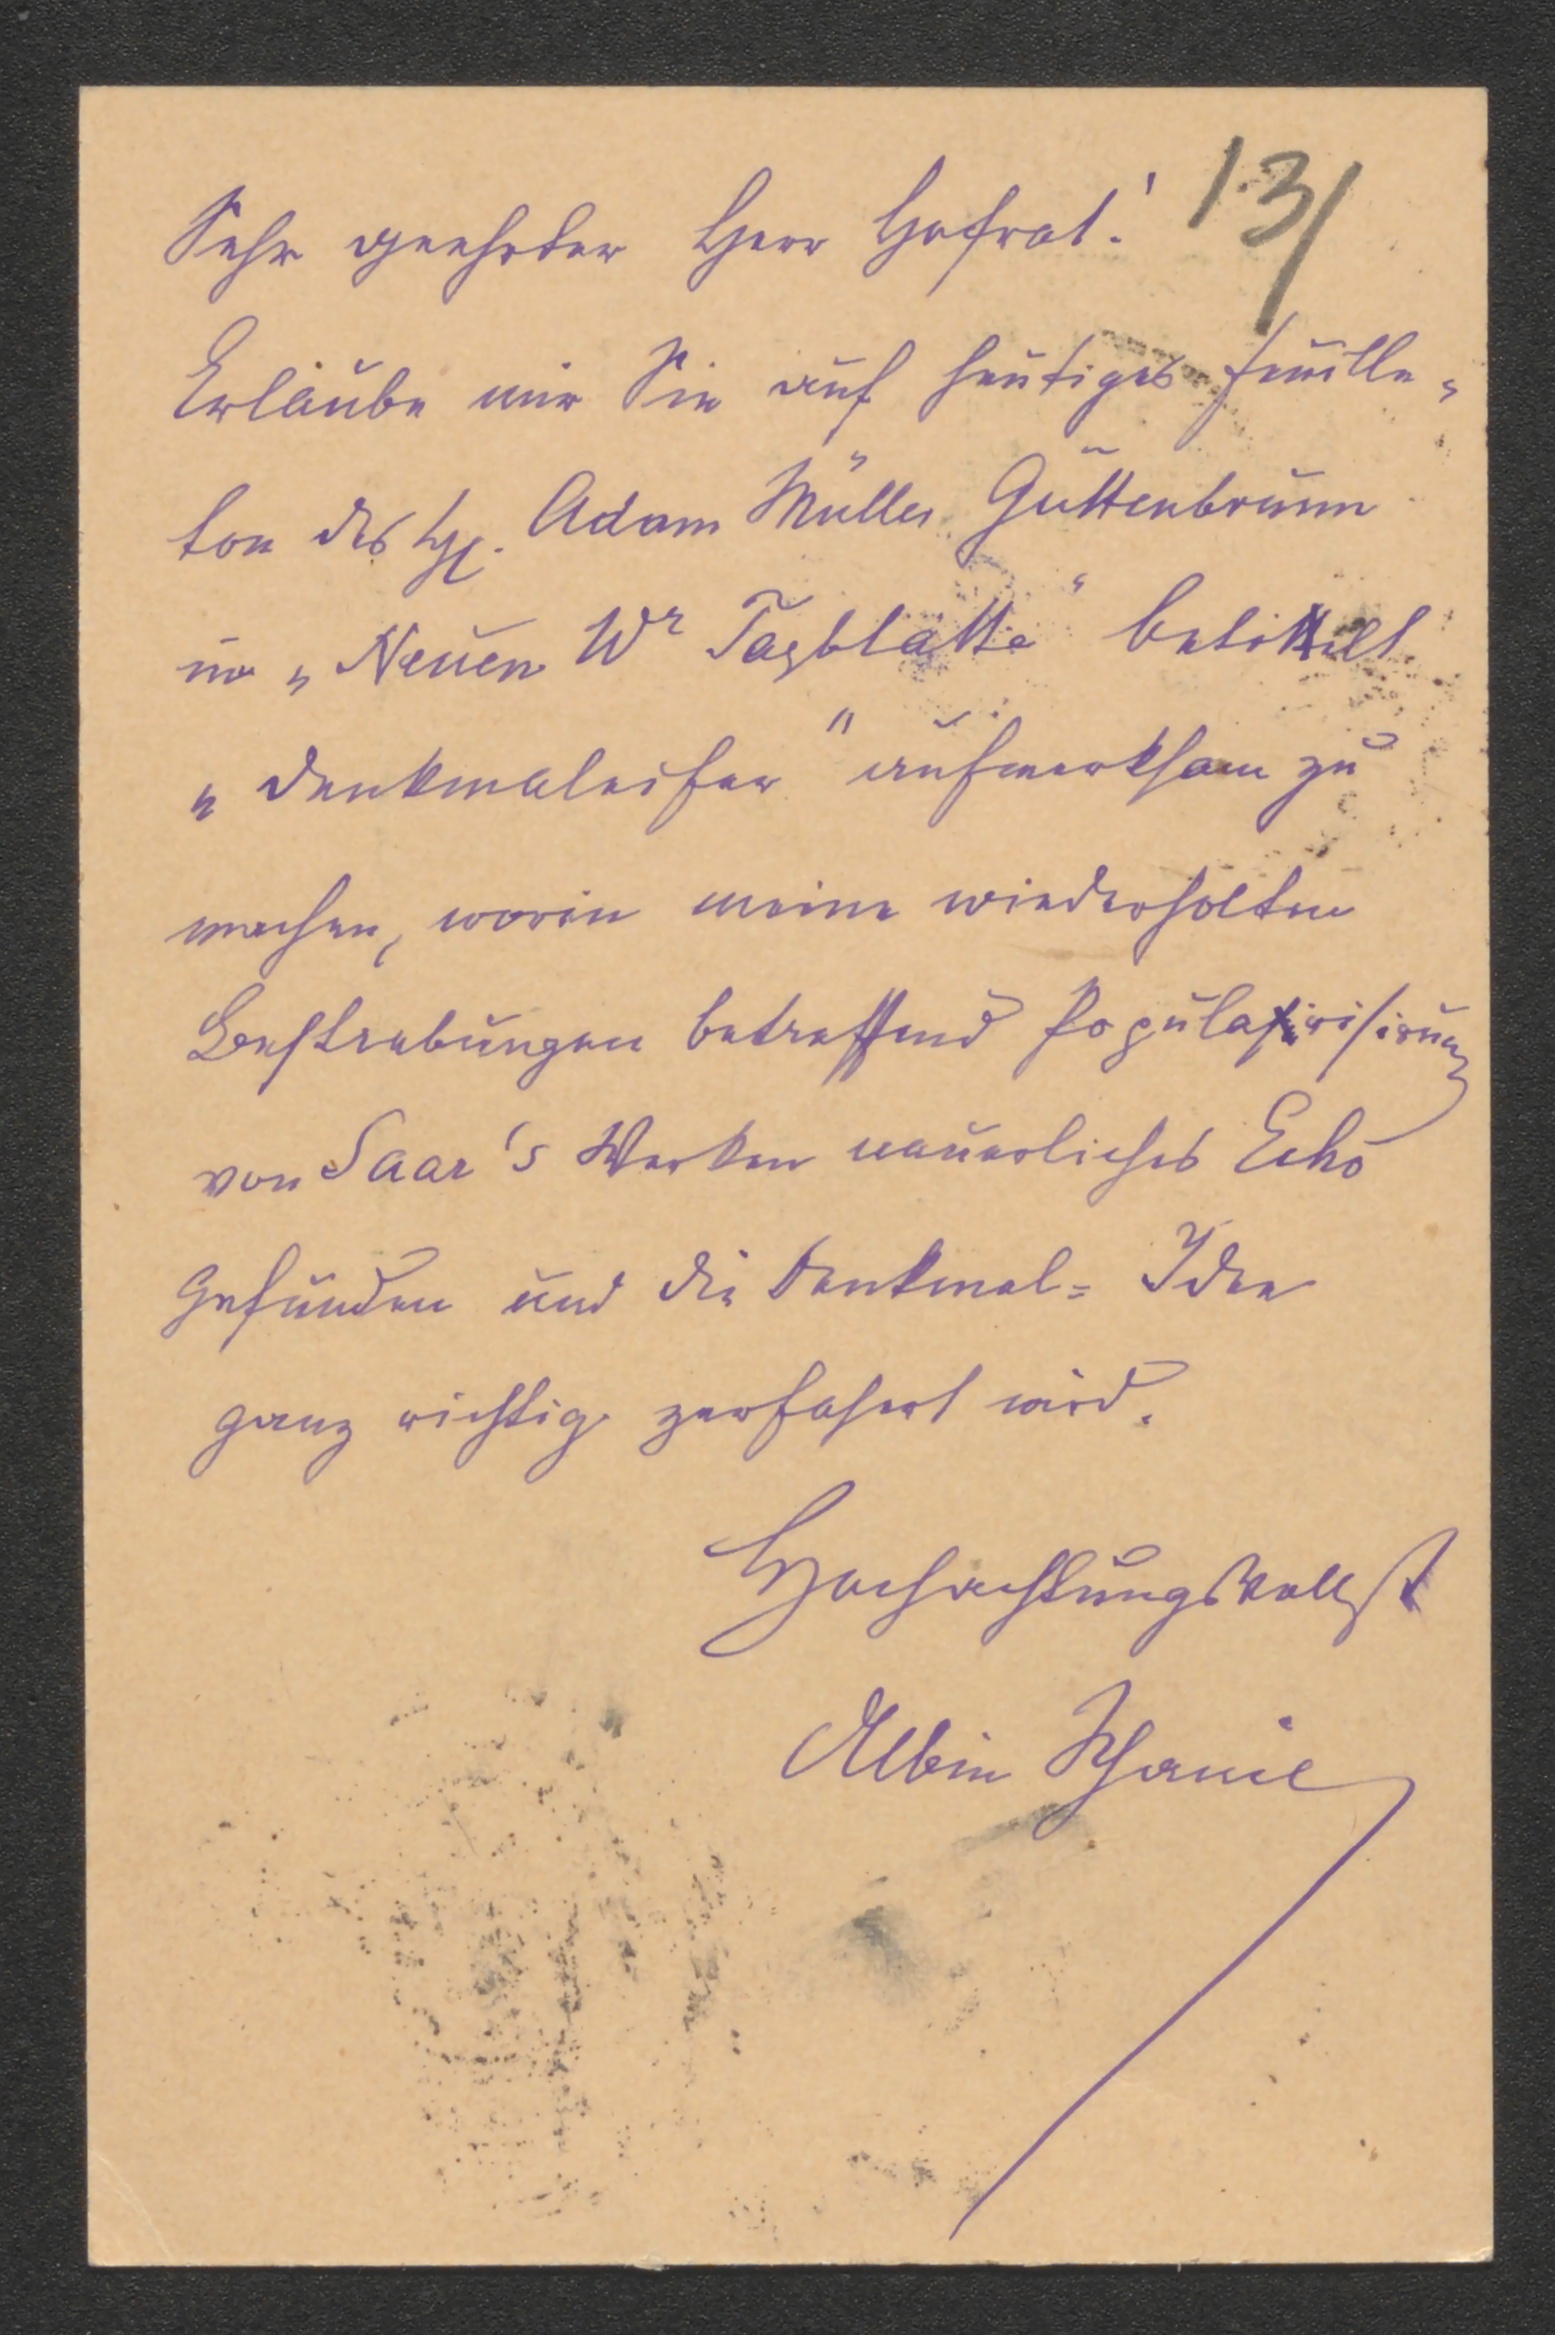 13/
Sehr geehrter Herr Hofrat!
Erlaube mir Sie auf heutiges Feuille-
ton des H. Adam Müller Guttenbrunn
im „Neuen Wr Tagblatte" betittelt
„Denkmaleifer" aufmerksam zu
machen, worin meine wiederholten
Bestrebungen betreffend Popularisirung
von Saar's Werken neuerliches Echo
gefunden und die Denkmal-Idee
ganz richtig zerfasert wird.
Hochachtungsvollst
Albin